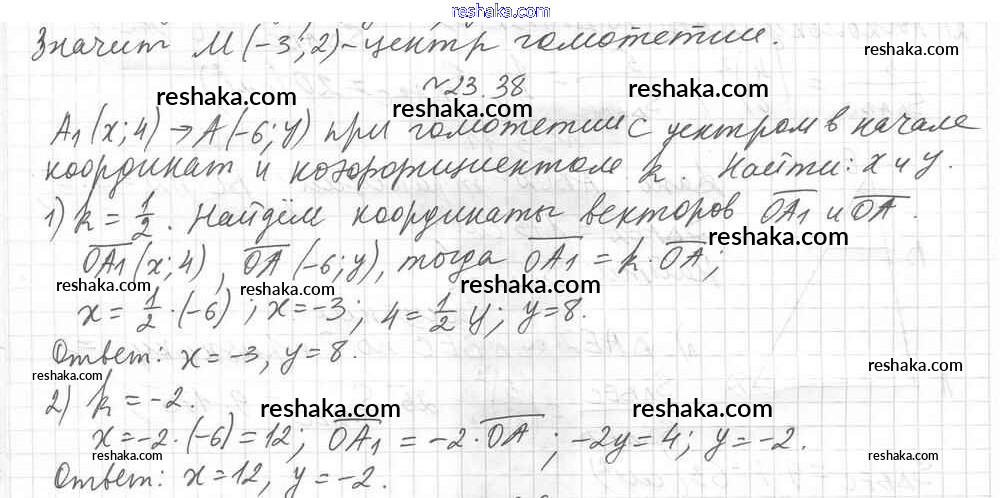 reshaka.com
Значит M(-3; 2) - центр гомотетии.
reshaka.com
№23.38
reshaka.com reshaka.com
A₁(x; 4) → A(-6; y) при гомотетии с центром в начале
reshaka.com
координат и коэффициентом k. Найти: x и y.
reshaka.com reshaka.com
1) k = 1/2. Найдём координаты векторов OA₁ и OA.
reshaka.com
OA₁(x; 4), OA(-6; y), тогда OA₁ = k · OA;
reshaka.com reshaka.com reshaka.com
x = 1/2 · (-6); x = -3; 4 = 1/2 y; y = 8.
Ответ: x = -3, y = 8.
reshaka.com reshaka.com
2) k = -2.
reshaka.com reshaka.com
x = -2 · (-6) = 12; OA₁ = -2 · OA; -2y = 4; y = -2.
reshaka.com reshaka.com reshaka.com
Ответ: x = 12, y = -2.